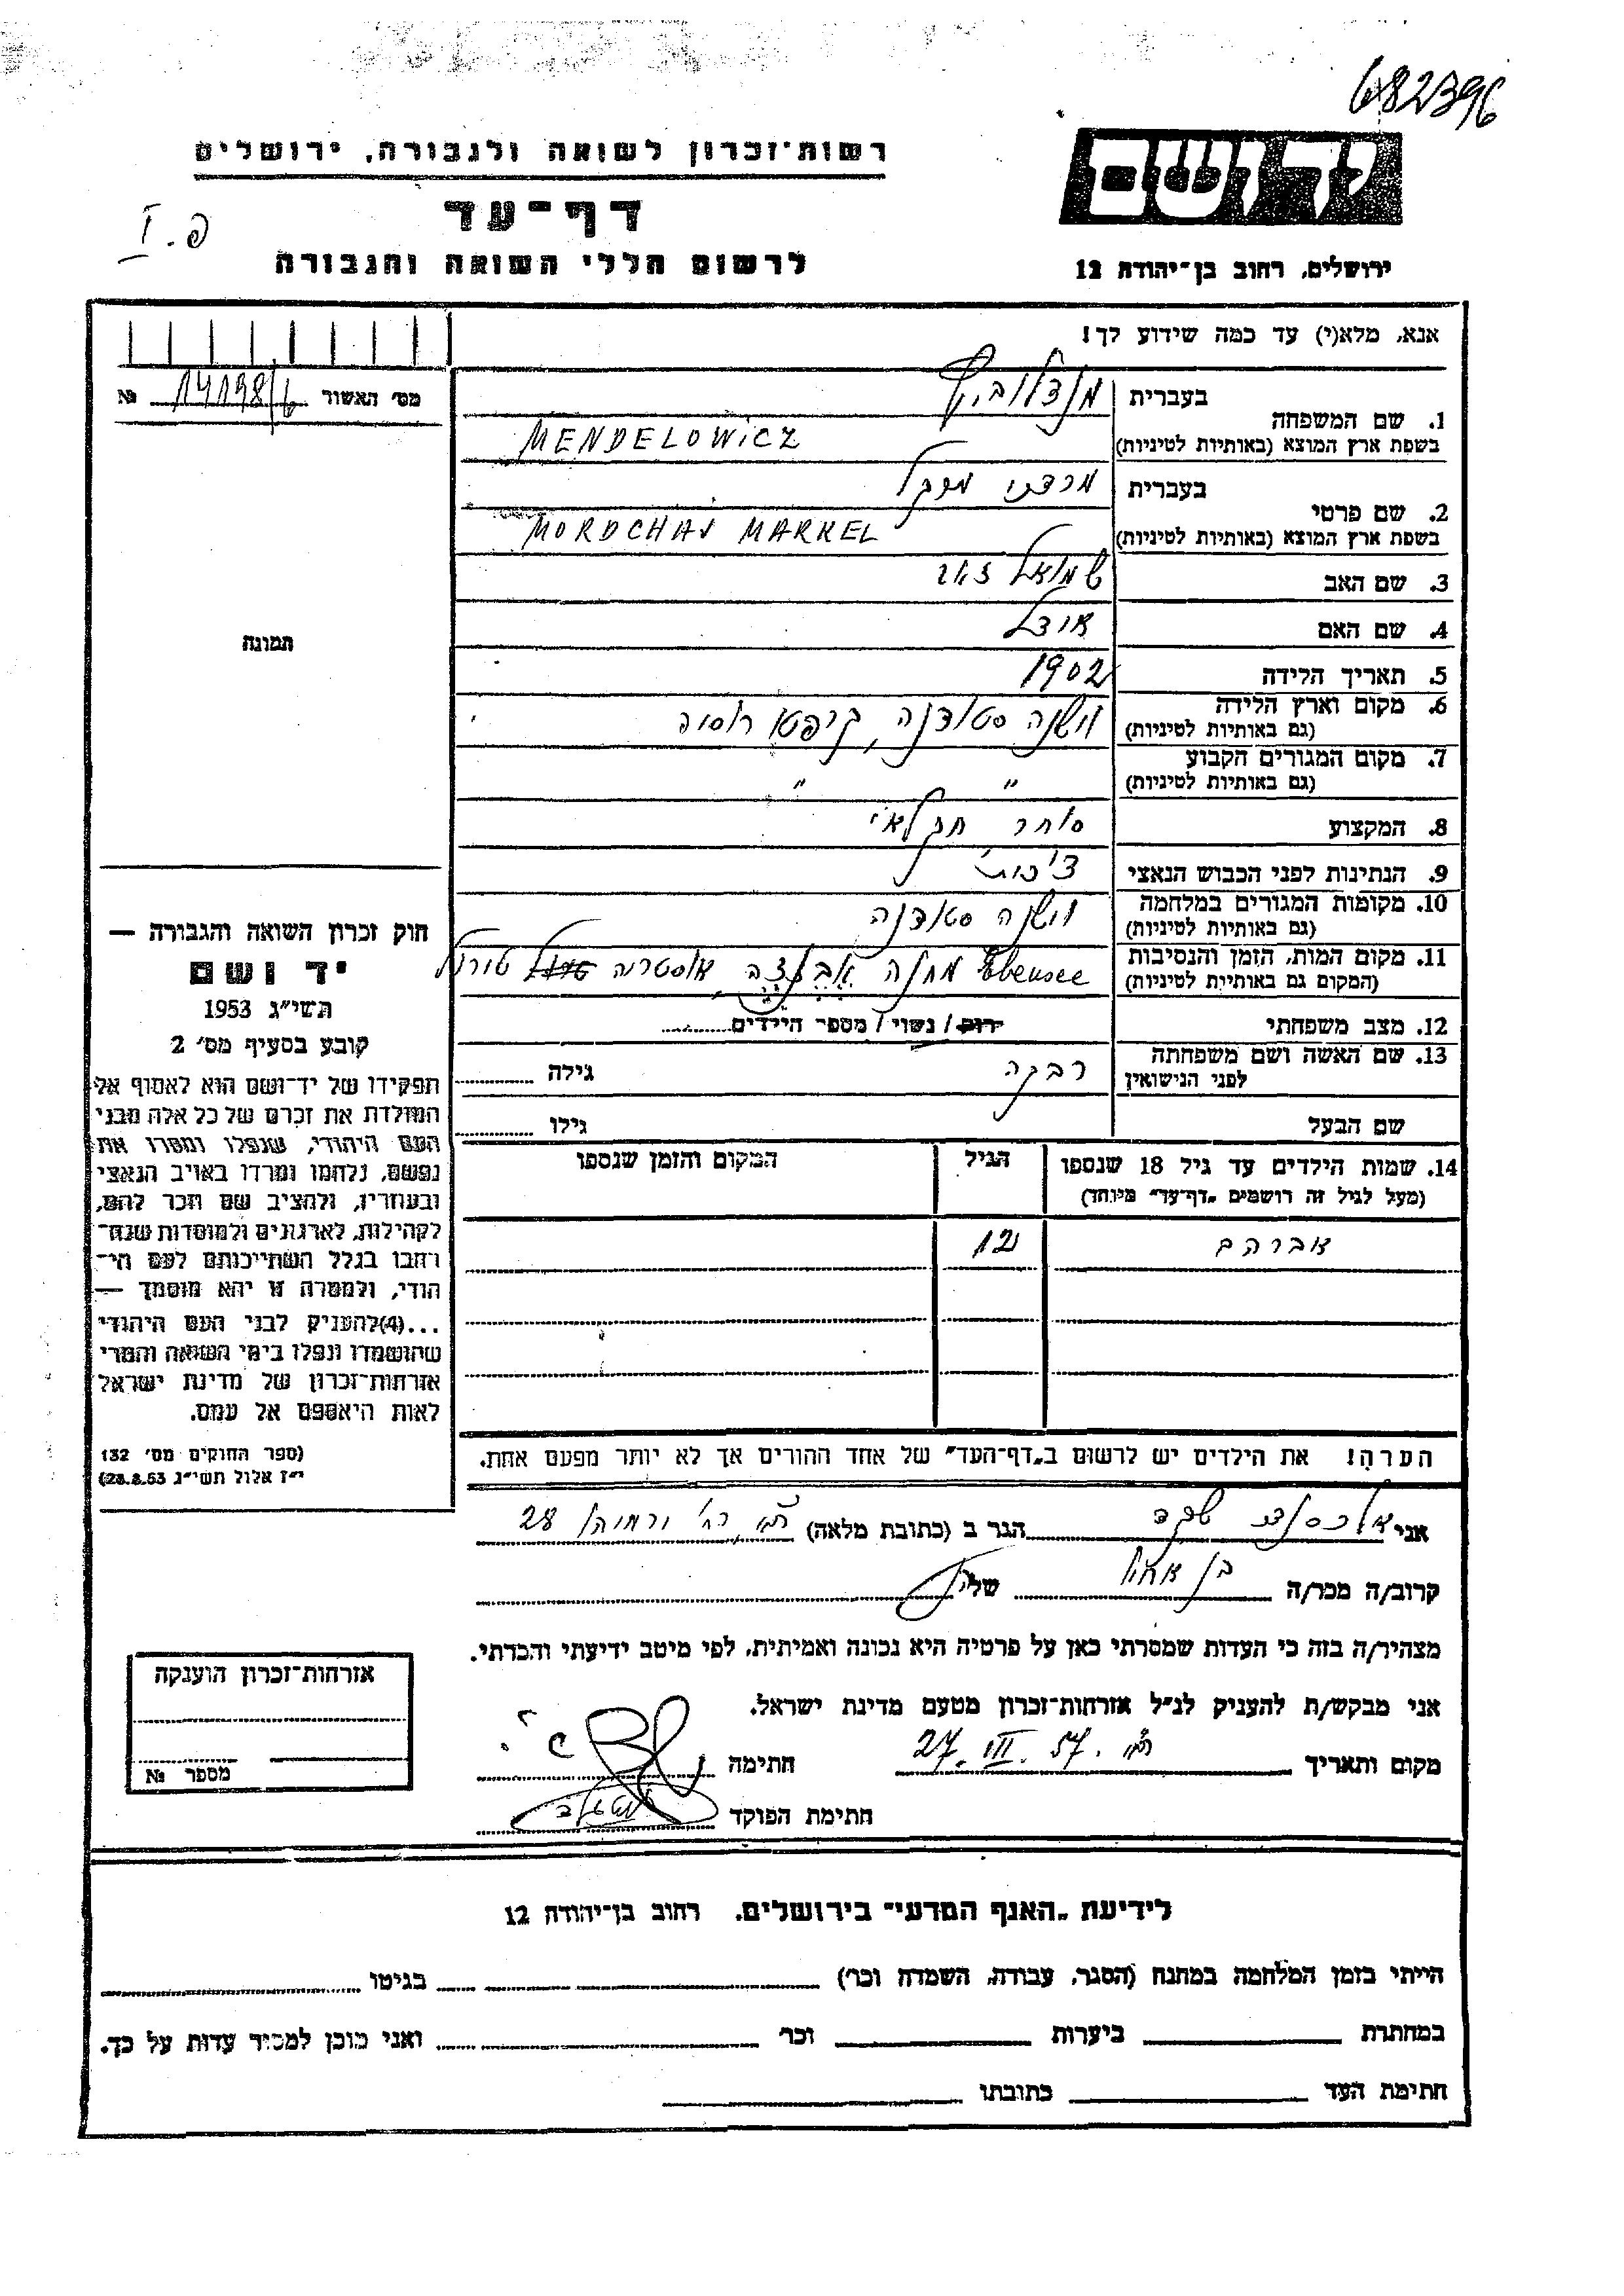 682396
רשות־זכרון לשואה ולגבורה, ירושלים
יד ושם
דף־עד
פ. I
לרשום חללי השואה והגבורה
ירושלים, רחוב בן־יהודה 12
אנא, מלא(י) עד כמה שידוע לך!
מס׳ האשור 14198/6 №
1. שם המשפחה
בעברית מנדלוביץ
בשפת ארץ המוצא (באותיות לטיניות) MENDELOWICZ
2. שם פרטי
בעברית מרדכי מרקל
בשפת ארץ המוצא (באותיות לטיניות) MORDCHAJ MARKEL
3. שם האב שמואל
4. שם האם אודל
תמונה
5. תאריך הלידה 1902
6. מקום וארץ הלידה וישנה סטודנה, קרפטו רוסיה
(גם באותיות לטיניות)
7. מקום המגורים הקבוע " "
(גם באותיות לטיניות)
8. המקצוע סוחר חקלאי
9. הנתינות לפני הכבוש הנאצי צ׳כית
10. מקומות המגורים במלחמה וישנה סטודנה
(גם באותיות לטיניות)
11. מקום המות, הזמן והנסיבות Ebensee מחנה אבנזה, אוסטריה טירול
(המקום גם באותיות לטיניות)
12. מצב משפחתי רוק / נשוי / מספר הילדים
13. שם האשה ושם משפחתה רבקה גילה
לפני הנישואין
שם הבעל גילו
14. שמות הילדים עד גיל 18 שנספו הגיל המקום והזמן שנספו
(מעל לגיל זה רושמים „דף־עד״ מיוחד)
אברהם 12
חוק זכרון השואה והגבורה —
יד ושם
תשי״ג 1953
קובע בסעיף מס׳ 2
תפקידו של יד־ושם הוא לאסוף אל
המולדת את זכרם של כל אלה מבני
העם היהודי, שנפלו ומסרו את
נפשם, נלחמו ומרדו באויב הנאצי
ובעוזריו, ולהציב שם וזכר להם,
לקהילות, לארגונים ולמוסדות שנח־
רבו בגלל השתייכותם לעם הי־
הודי, ולמטרה זו יהא מוסמך —
...(4) להעניק לבני העם היהודי
שהושמדו ונפלו בימי השואה והמרי
אזרחות־זכרון של מדינת ישראל
לאות היאספם אל עמם.
(ספר החוקים מס׳ 132
י״ז אלול תשי״ג 28.8.53)
הערה! את הילדים יש לרשום ב„דף־העד״ של אחד ההורים אך לא יותר מפעם אחת.
אני אלכסנדר שקד הגר ב (כתובת מלאה) 28
קרוב/ה מכר/ה בן אחיו של
מצהיר/ה בזה כי העדות שמסרתי כאן על פרטיה היא נכונה ואמיתית, לפי מיטב ידיעתי והכרתי.
אני מבקש/ת להעניק לנ״ל אזרחות־זכרון מטעם מדינת ישראל.
מקום ותאריך 27. III. 57. חתימה
חתימת הפוקד
אזרחות־זכרון הוענקה
מספר №
לידיעת „האגף המדעי״ בירושלים. רחוב בן־יהודה 12
הייתי בזמן המלחמה במחנה (הסגר, עבודה, השמדה וכר׳) בגיטו
במחתרת ביערות וכר׳ ואני מוכן למסור עדות על כך.
חתימת העד כתובתו